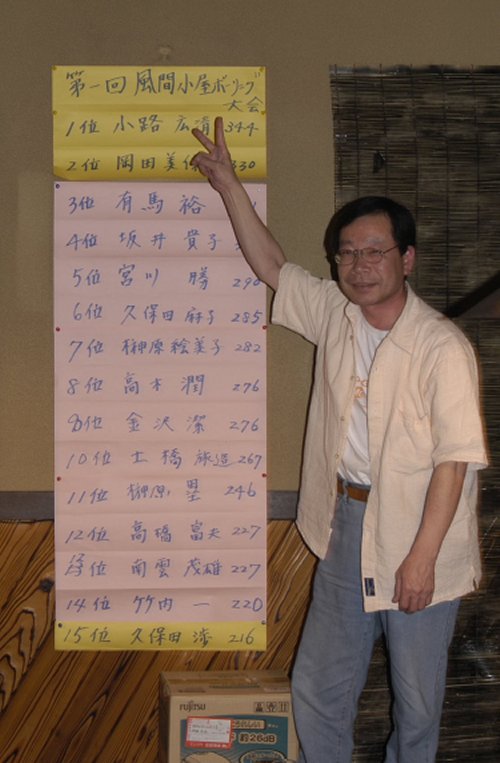 第一回 風間小屋ボーリング
大会
1位 小路 広清 344
2位 岡田 美 330
3位 有馬 裕
4位 坂井 貴子
5位 宮川 勝 290
6位 久保田 麻子 285
7位 榊原 絵美子 282
8位 高木 潤 276
8位 金沢 潔 276
10位 土橋 267
11位 榊原 246
12位 高橋 富夫 227
位 南雲 茂雄 227
14位 竹内 一 220
15位 久保田 216
FUJITSU
約26dB